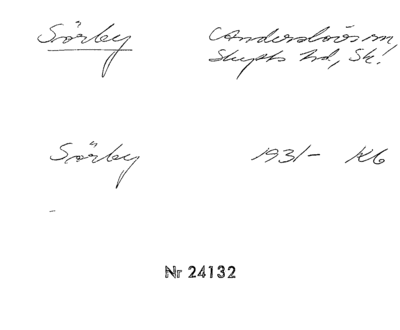 Sörby Anderslövs sn,
Skytts hd, Sk!
Sörby 1931- K6
Nr 24132